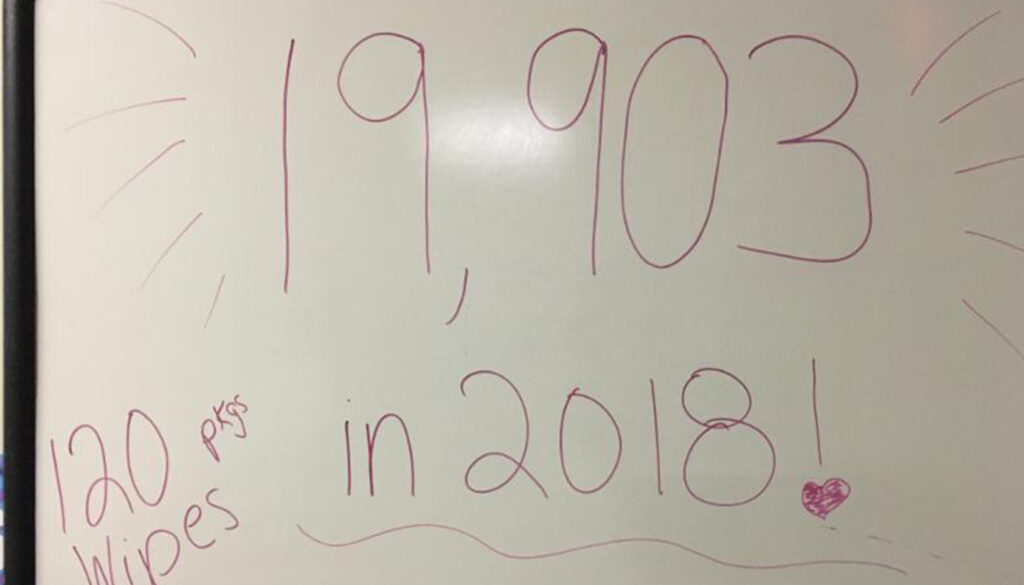 19,903
in 2018!
120 pkgs
Wipes